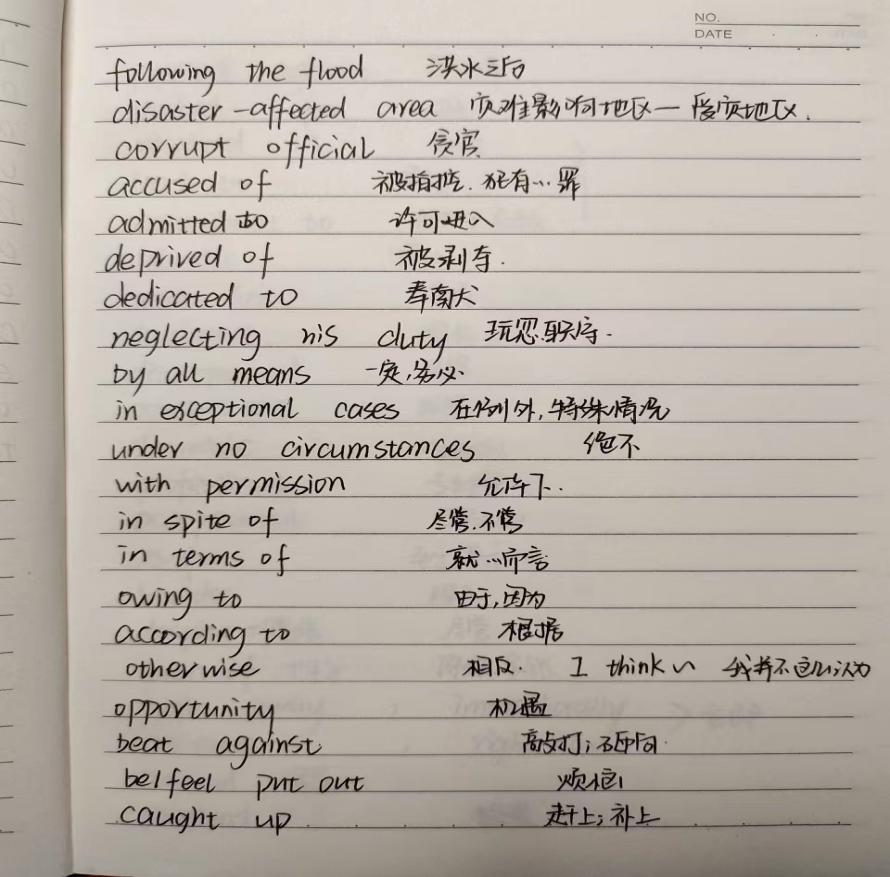 NO.
DATE
following the flood 洪水之后
disaster-affected area 灾难影响地区—受灾地区.
corrupt official 贪官
accused of 被指控.犯有…罪
admitted to 许可进入
deprived of 被剥夺.
dedicated to 奉献
neglecting his duty 玩忽职守.
by all means 一定,务必.
in exceptional cases 在例外,特殊情况
under no circumstances 绝不
with permission 允许下.
in spite of 尽管.不管
in terms of 就…而言
owing to 由于,因为
according to 根据
otherwise 相反. I think ~ 我并不这么认为
opportunity 机遇
beat against 敲打;
be/feel put out 烦恼
caught up 赶上;补上